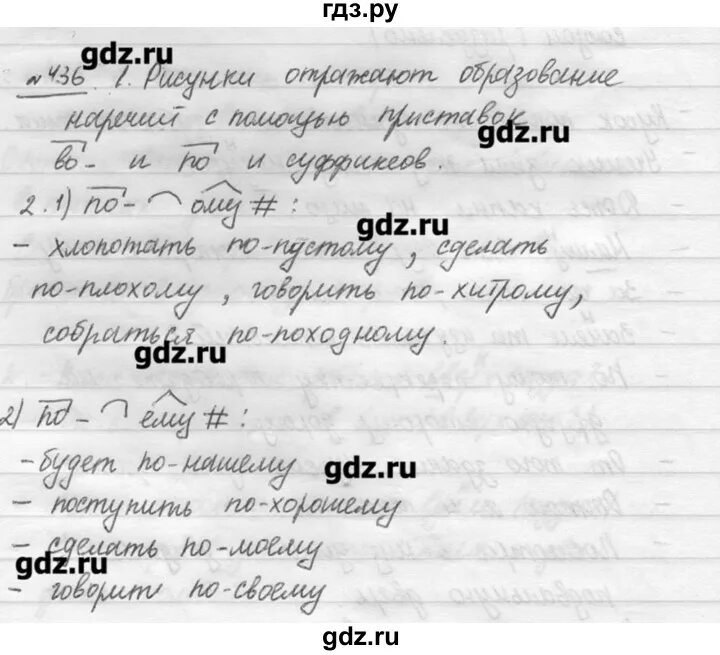 гдз.ру
gdz.ru
№436 1. Рисунки отражают образование
наречий с помощью приставок
gdz.ru
во- и по и суффиксов.
2. 1) по- ому # :
gdz.ru
- хлопотать по-пустому, сделать
по-плохому, говорить по-хитрому,
собраться по-походному.
gdz.ru
2) по- ему # :
- будет по-нашему
gdz.ru
- поступить по-хорошему
- сделать по-моему
gdz.ru
- говорит по-своему
gdz.ru